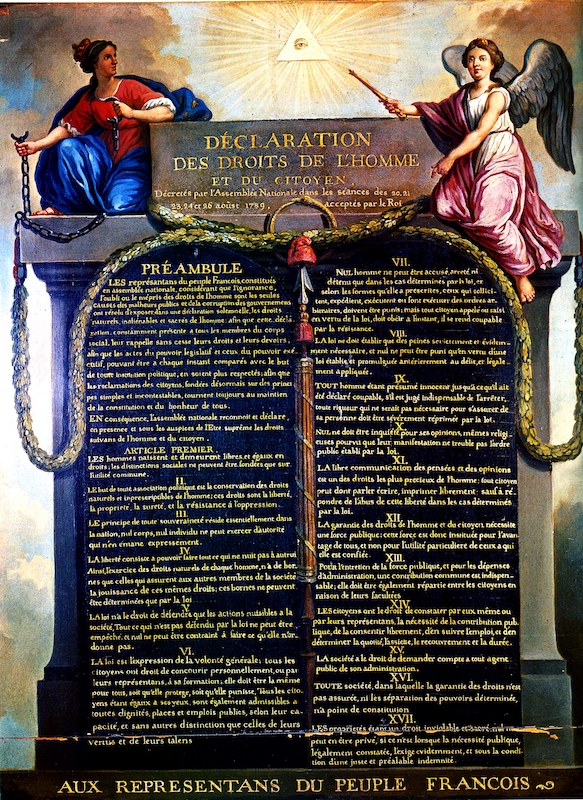 DÉCLARATION
DES DROITS DE L'HOMME
ET DU CITOYEN
Décretés par l'Assemblée Nationale dans les séances des 20, 21
23, 24 et 26 aoûst 1789, acceptés par le Roi
PRÉAMBULE
LES représantans du peuple Francois, constitués
en assemblée nationale, considérant que l'ignorance,
l'oubli ou le mépris des droits de l'homme sont les seules
causes des malheurs publics et de la corruption des gouvernemens
ont résolu d'exposer dans une déclaration solemnelle, les droits
naturels, inaliénables et sacrés de l'homme: afin que cette décla-
ration, constamment présente a tous les membres du corps
social, leur rappelle sans cesse leurs droits et leurs devoirs;
afin que les actes du pouvoir législatif et ceux du pouvoir exé-
cutif, pouvant être a chaque instant comparés avec le but
de toute institution politique, en soient plus respectés; afin que
les réclamations des citoyens, fondées désormais sur des princi-
pes simples et incontestables, tournent toujours au maintien
de la constitution et du bonheur de tous.
EN conséquence, l'assemblée nationale reconnoit et déclare,
en presence et sous les auspices de l'Etre suprême les droits
suivans de l'homme et du citoyen.
ARTICLE PREMIER
LES hommes naissent et demeurent libres et égaux en
droits; les distinctions sociales ne peuvent être fondées que sur
l'utilité commune.
II.
LE but de toute association politique est la conservation des droits
naturels et inprescriptibles de l'homme; ces droits sont la liberté,
la propriété, la sureté, et la résistance à l'oppression.
III.
LE principe de toute souveraineté réside essentiellement dans
la nation, nul corps, nul individu ne peut exercer d'autorité
qui n'en émane expressement.
IV.
LA liberté consiste a pouvoir faire tout ce qui ne nuit pas à autrui
Ainsi, l'exercice des droits naturels de chaque homme, n'a de bor-
nes que celles qui assurent aux autres membres de la société
la jouissance de ces mêmes droits; ces bornes ne peuvent
être déterminées que par la loi
V.
LA loi n'a le droit de défendre que les actions nuisibles a la
société. Tout ce qui n'est pas défendu par la loi ne peut être
empêché, et nul ne peut être contraint à faire ce qu'elle n'or-
donne pas.
VI.
LA loi est l'expression de la volonté générale; tous les
citoyens ont droit de concourir personnellement, ou par
leurs représentans, à sa formation; elle doit être la même
pour tous, soit qu'elle protege, soit qu'elle punisse. Tous les cito-
yens étant égaux a ses yeux, sont également admissibles a
toutes dignités, places et emplois publics, selon leur ca-
pacité, et sans autres distinction que celles de leurs
vertus et de leurs talens
VII.
NUL homme ne peut être accusé, arreté ni
détenu que dans les cas déterminés par la loi, et
selon les formes qu'elle a prescrites, ceux qui sollici-
tent, expédient, exécutent ou font exécuter des ordres ar-
bitraires, doivent être punis; mais tout citoyen appelé ou saisi
en vertu de la loi, doit obéir a l'instant, il se rend coupable
par la résistance.
VIII.
LA loi ne doit établir que des peines strictement et évidem-
ment nécessaire, et nul ne peut être puni qu'en vertu d'une
loi établie, et promulguée antérierement au délit, et légale-
ment appliquée.
IX.
TOUT homme étant présumé innocent jusqu'a ce qu'il ait
été déclaré coupable, s'il est jugé indispensable de l'arrêter,
toute rigueur qui ne serait pas nécessaire pour s'assurer de
sa personne doit être sévèrement réprimée par la loi.
X.
NUL ne doit être inquiété pour ses opinions, mêmes religi-
euses pourvu que leur manifestation ne trouble pas l'ordre
public établi par la loi.
XI.
LA libre communication des pensées et des opinions
est un des droits les plus precieux de l'homme; tout citoyen
peut dont parler écrire, imprimer librement: sauf à ré-
pondre de l'abus de cette liberté dans les cas déterminés
par la loi.
XII.
LA garantie des droits de l'homme et du citoyen nécessite
une force publique; cette force est donc instituée pour l'avan-
tage de tous, et non pour l'utilité particuliere de ceux a qui
elle est confiée.
XIII.
Pour l'entretien de la force publique, et pour les dépenses
d'administration, une contribution commune est indispen-
sable; elle doit être également répartie entre les citoyens en
raison de leurs facultées
XIV.
LES citoyens ont le droit de constater par eux même ou
par leurs représentans, la nécessité de la contribution pub-
lique, de la consentir librement, d'en suivre l'emploi, et d'en
déterminer la quotité, l'assiete, le recouvrement et la durée.
XV.
LA société a le droit de demander compte a tout agent
public de son administration.
XVI.
TOUTE société, dans laquelle la garantie des droits n'est
pas assurée, ni les séparation des pouvoirs déterminée,
n'a point de constitution
XVII.
LES proprietés étant un droit inviolable et sacré, nul ne
peut en être privé, si ce n'est lorsque la nécessité publique,
légalement constatée, l'exige evidemment, et sous la condi-
tion d'une juste et préalable indemnité.
AUX REPRESENTANS DU PEUPLE FRANCOIS